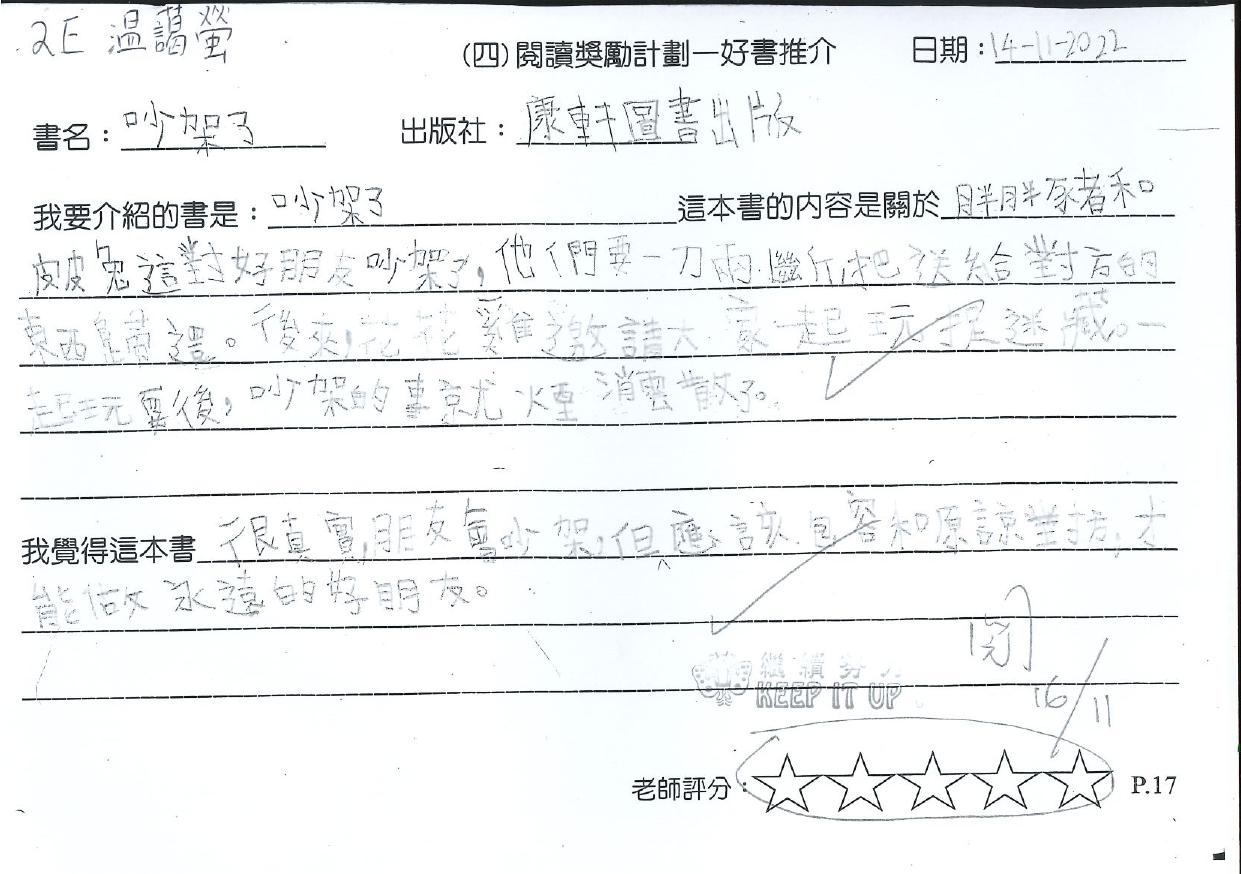 2E 温藹螢
(四)閱讀獎勵計劃—好書推介 日期：14-11-2022
書名：吵架了 出版社：康軒圖書出版
我要介紹的書是：吵架了 這本書的內容是關於胖胖豬和
皮皮兔這對好朋友吵架了，他們要一刀兩斷，把送給對方的
東西歸還。後來，花花雞邀請大家一起玩捉迷藏。一
起玩耍後，吵架的事就煙消雲散了。
我覺得這本書很真實，朋友會吵架，但應該包容和原諒對方，才
能做永遠的好朋友。
閱
繼續努力
KEEP IT UP
16/11
老師評分： P.17